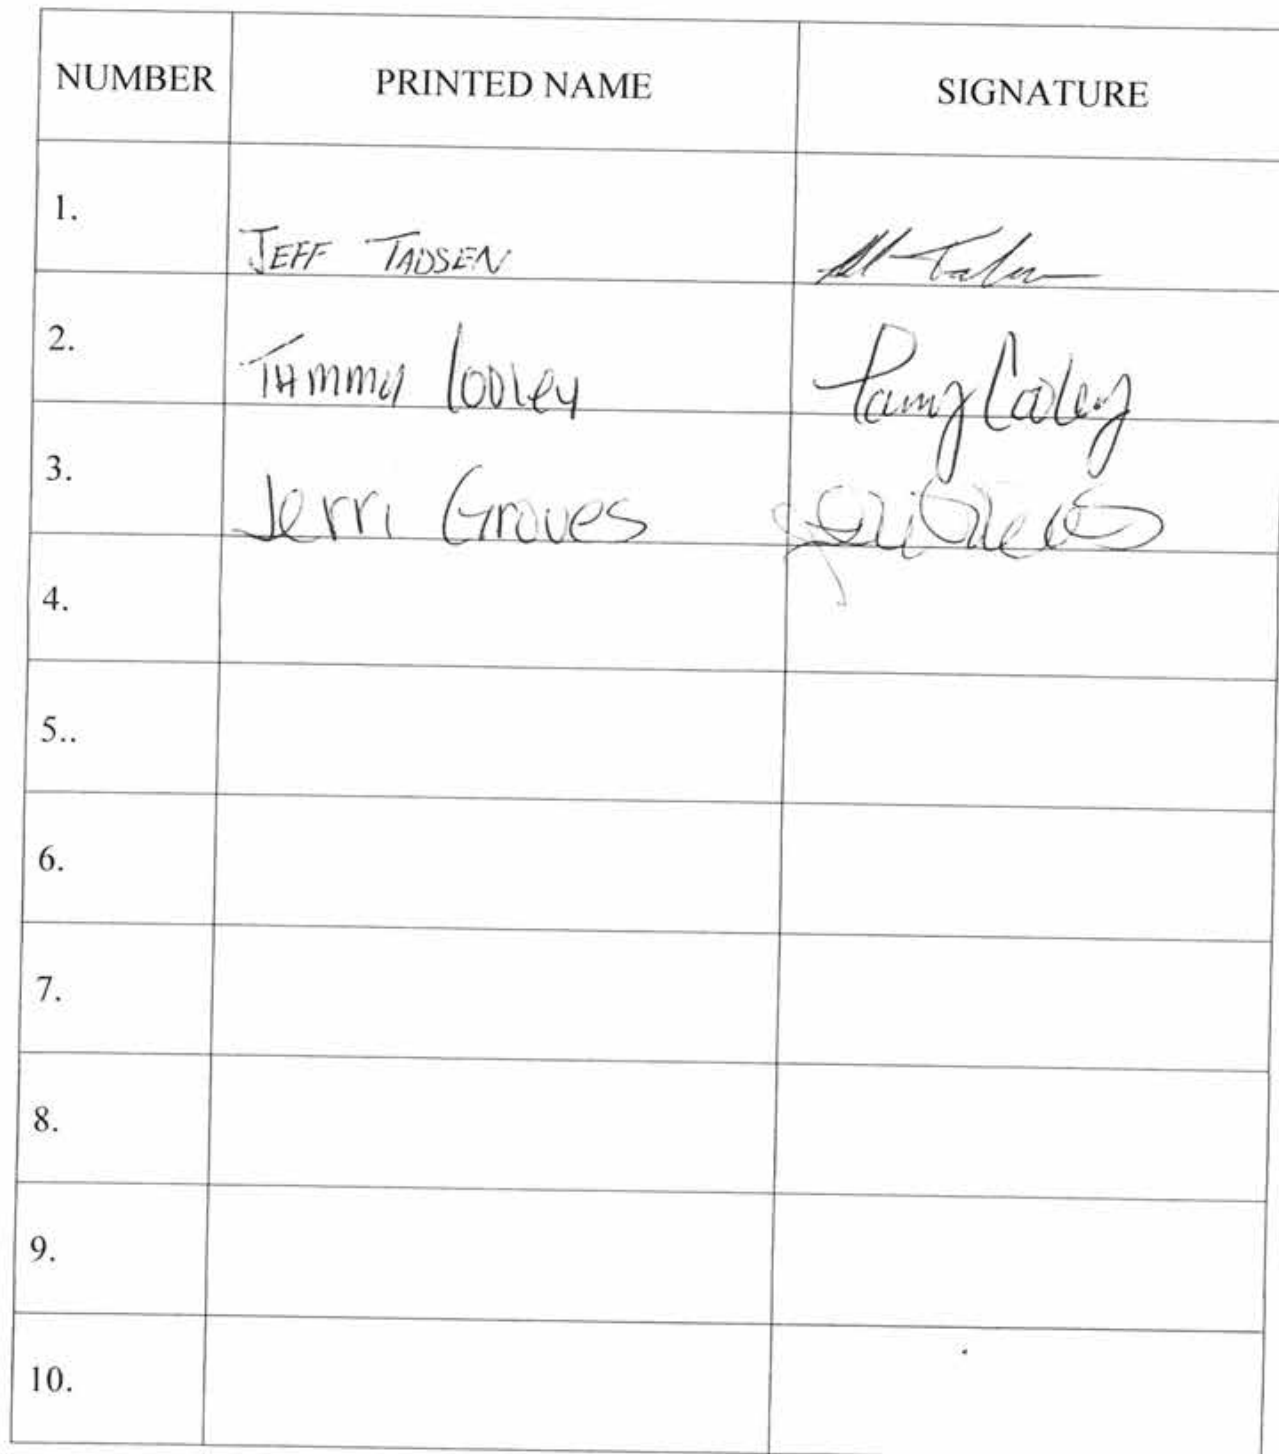 NUMBER PRINTED NAME SIGNATURE
1. JEFF TADSEN
2. Tammy Cooley Tamy Cooley
3. Jerri Graves
4.
5..
6.
7.
8.
9.
10.